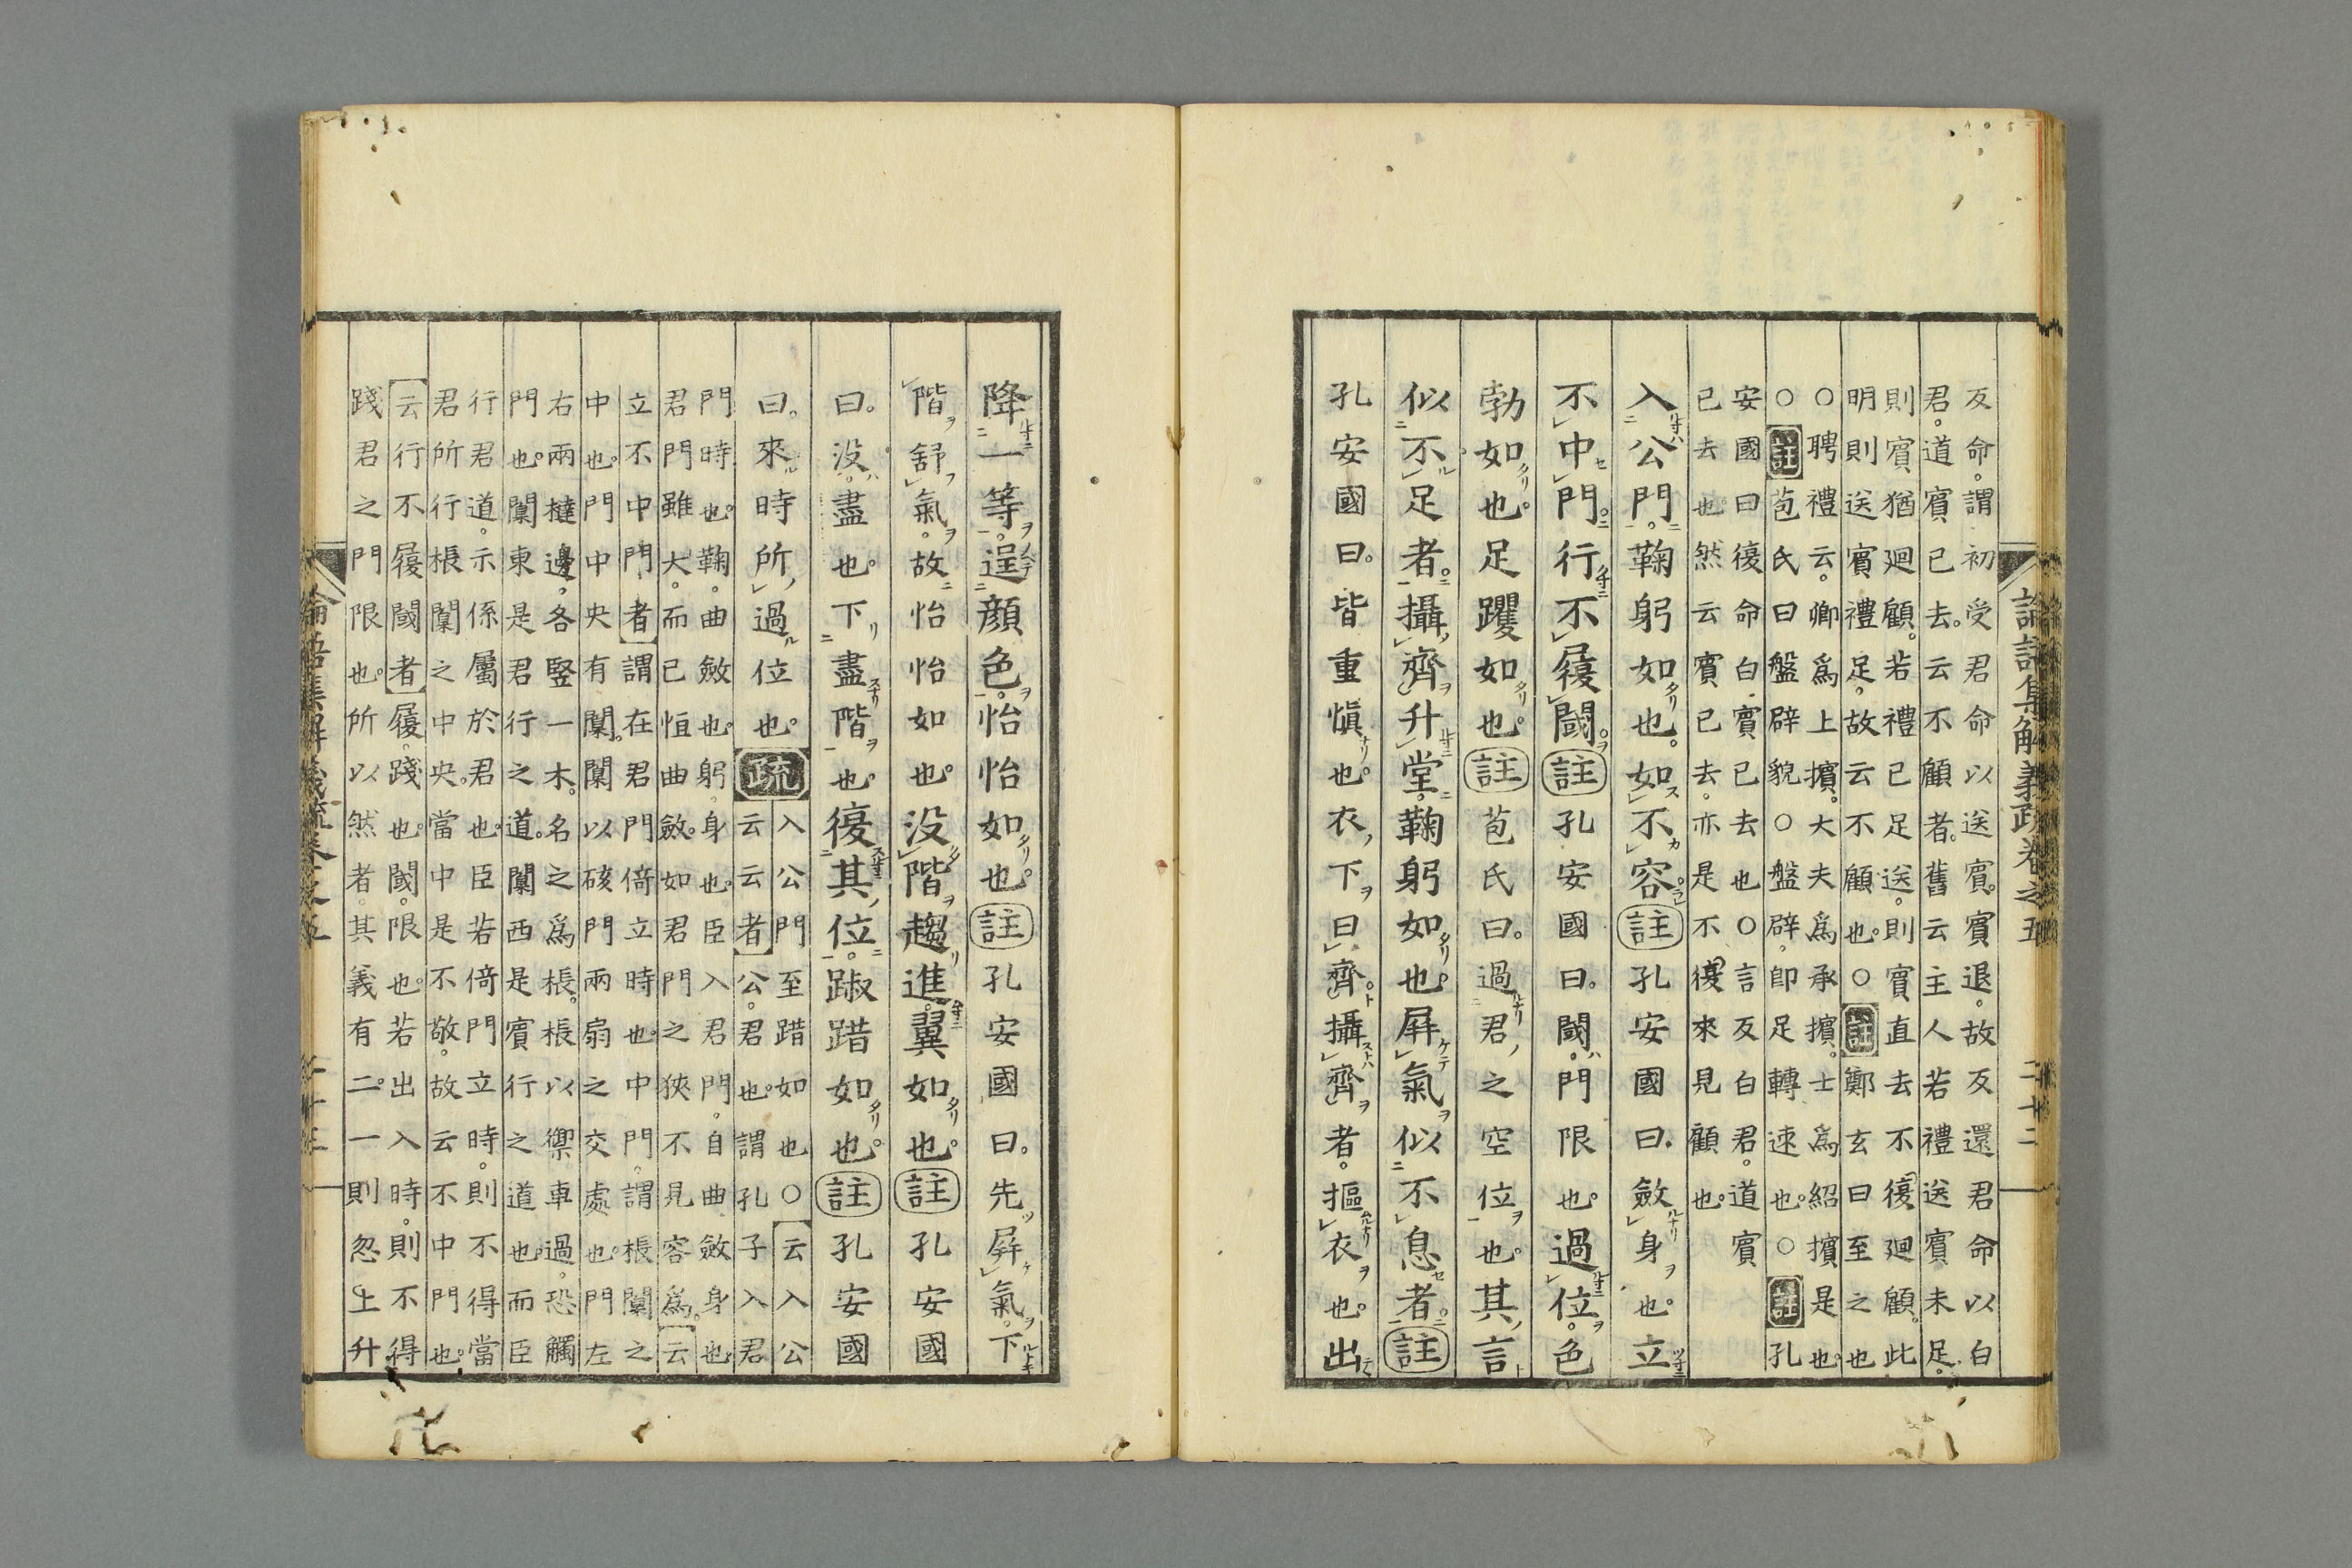 論語集解義疏卷之五 二十二
反命。謂初受君命以送賓。賓退。故反還君命以白
君。道賓已去。云不顧者。舊云主人若禮送賓未足。
則賓猶廻顧。若禮已足送。則賓直去不復廻顧。此
明則送賓禮足。故云不顧也。○註鄭玄曰至之也
○聘禮云。卿爲上擯。大夫爲承擯。士爲紹擯是也。
○註苞氏曰盤辟貌○盤辟。卽足轉速也。○註孔
安國曰復命白賓已去也○言反白君。道賓
已去也。然云賓已去。亦是不復來見顧也。
入公門。鞠躬如也。如不容註孔安國曰。斂身也。立
不中門。行不履閾。註孔安國曰。閾。門限也。過位。色
勃如也。足躩如也。註苞氏曰。過君之空位也。其言
似不足者。攝齊升堂。鞠躬如也。屛氣似不息者。註
孔安國曰。皆重愼也。衣下曰齊。攝齊者。摳衣也。出
降一等。逞顏色。怡怡如也。註孔安國曰。先屛氣。下
階舒氣。故怡怡如也。没階趨進。翼如也。註孔安國
曰。没。盡也。下盡階也。復其位。踧踖如也。註孔安國
曰。來時所過位也。疏入公門至踖如也○云入公
云云者公。君也。謂孔子入君
門時也。鞠。曲斂也。躬。身也。臣入君門。自曲斂身也。
君門雖大。而已恒曲斂。如君門之狹不見容爲。云
立不中門者謂在君門倚立時也。中門。謂棖闑之
中也。門中央有闑。闑以硋門兩扇之交處也。門左
右兩橽邊。各竪一木。名之爲棖。棖以禦車過。恐觸
門也。闑東是君行之道。闑西是賓行之道也。而臣
行君道。示係屬於君也。臣若倚門立時。則不得當
君所行棖闑之中央。當中是不敬。故云不中門也。
云行不履閾者履。踐也。閾。限也。若出入時。則不得
踐君之門限也。所以然者。其義有二。一則忽上升
論語集解義疏卷之五 二十三